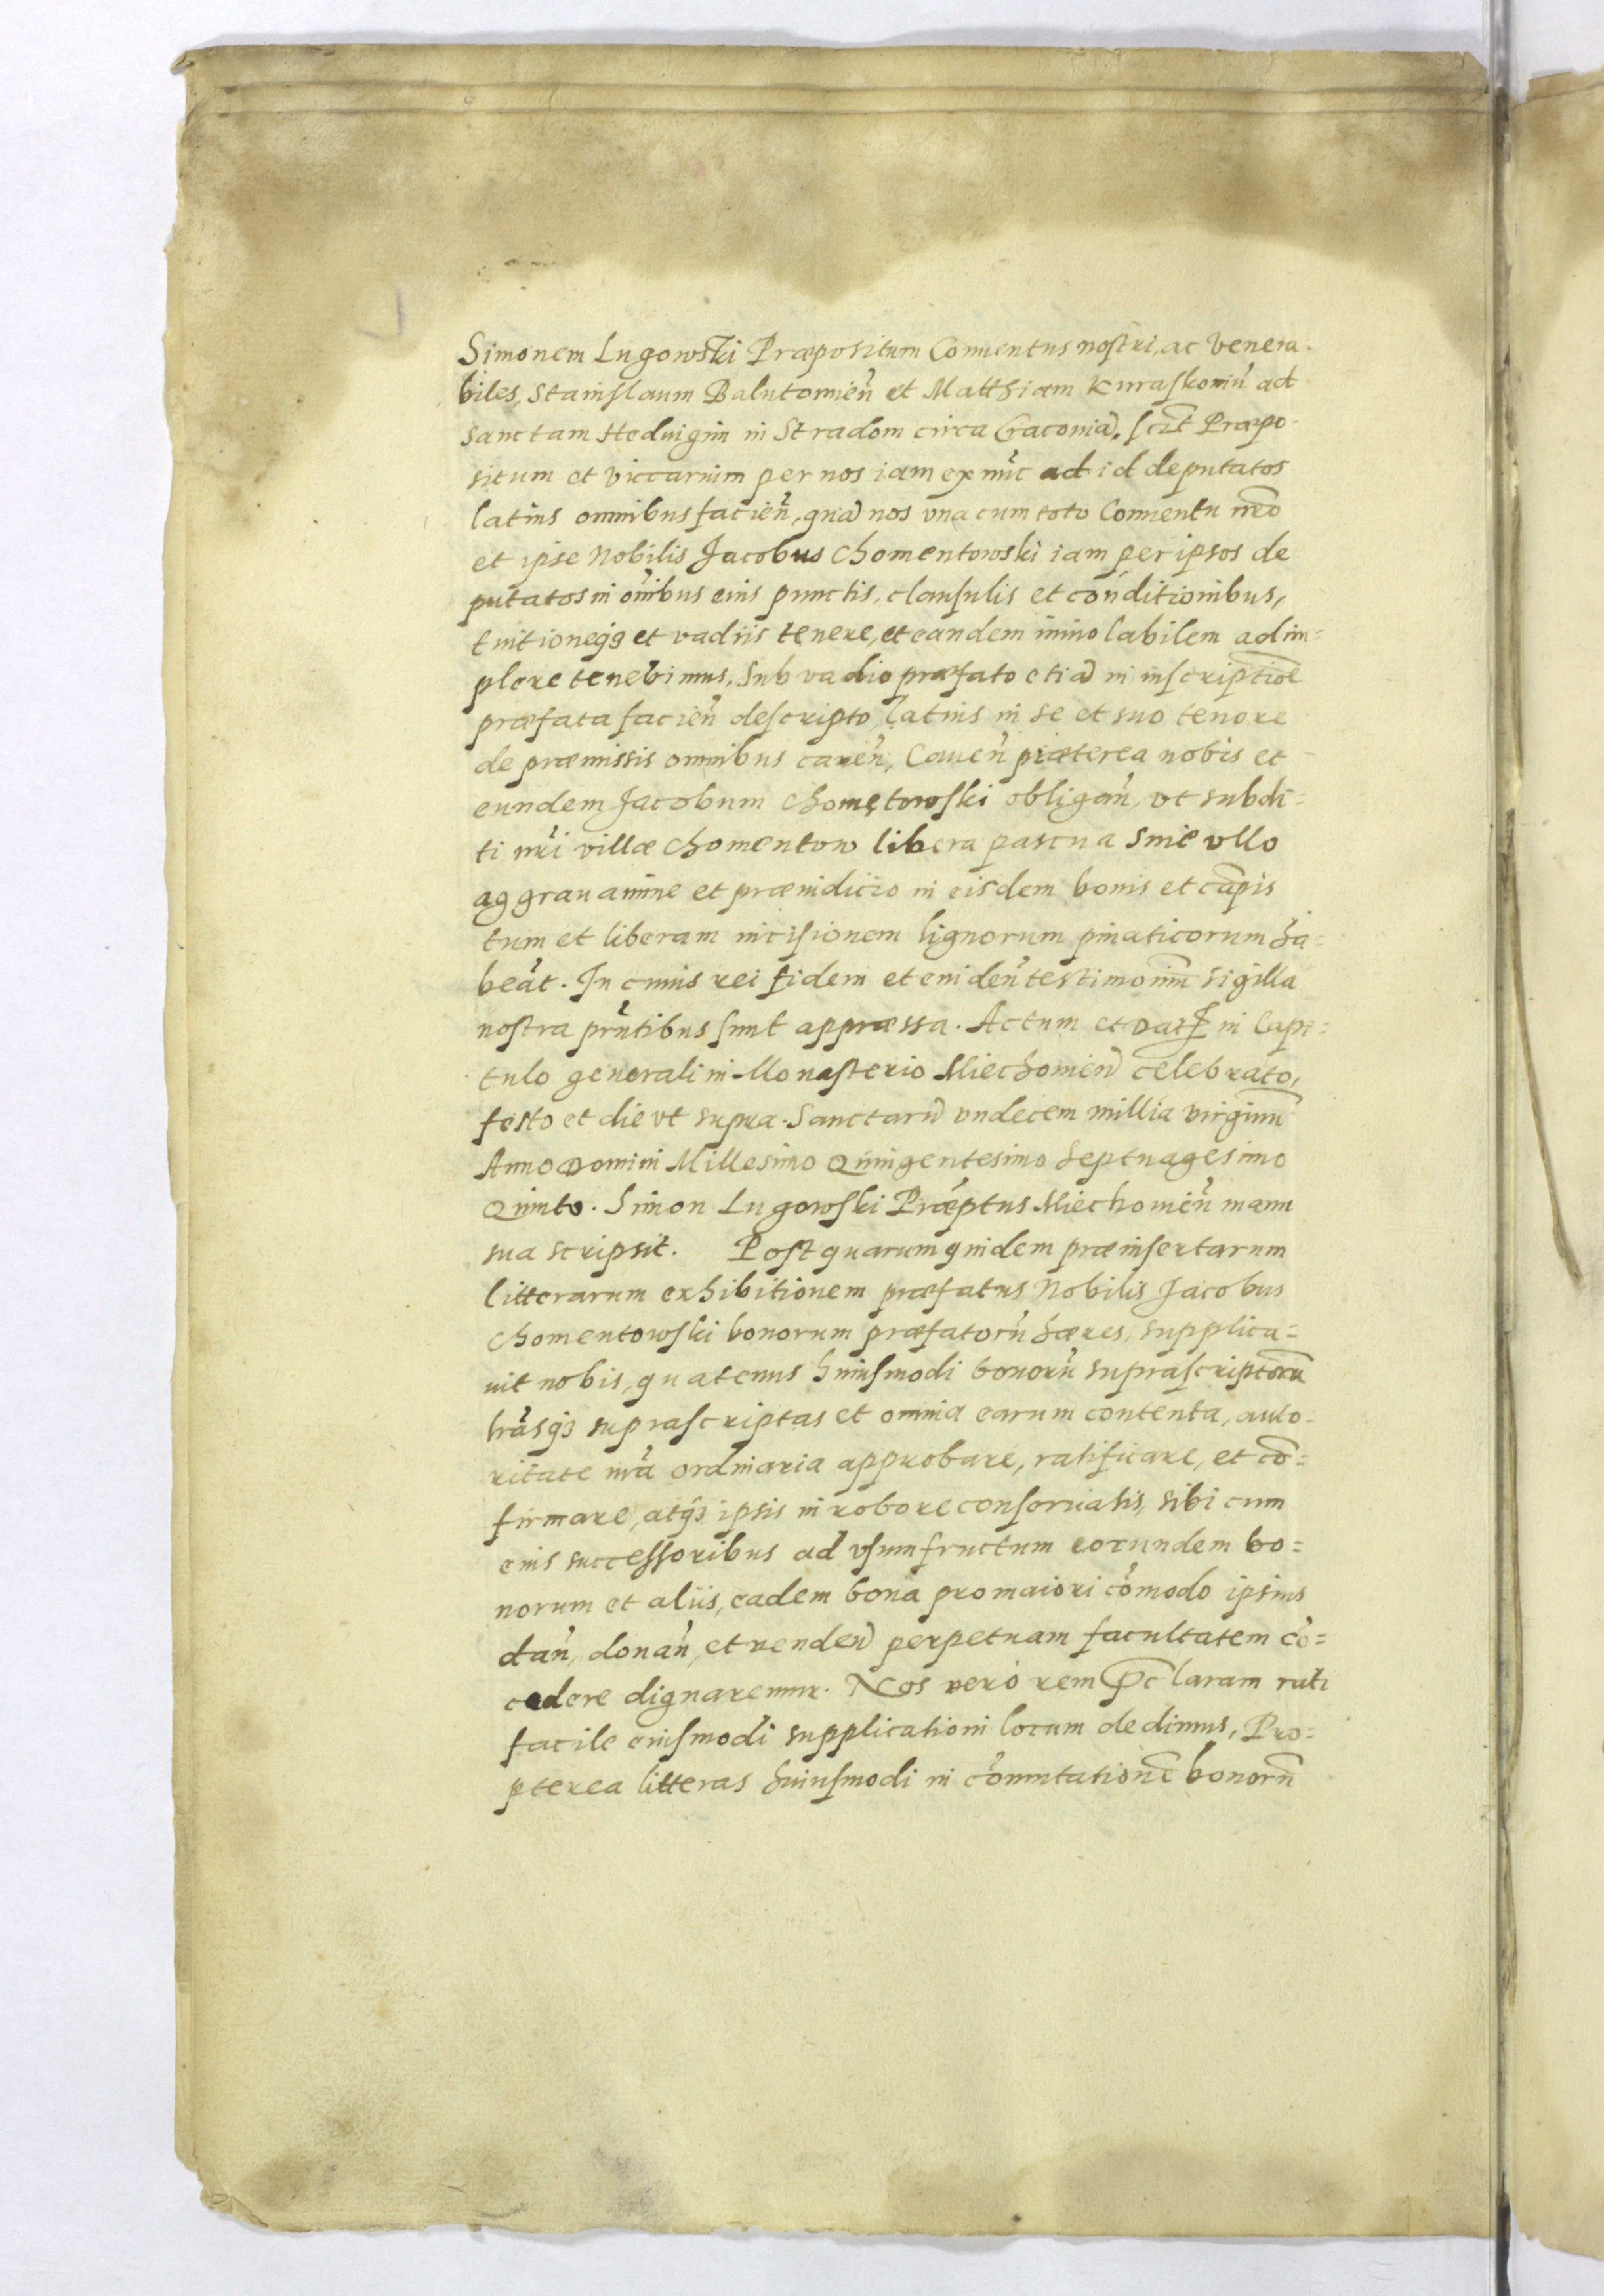 Simonem Lugowski Præpositum Conuentus nostri, ac Venera-
biles, Stanislaum Balutowień et Matthiam Kuraskowiń ad
sanctam Heduigim in Stradom circa Cracouiã, scił Præpo-
situm et viccarium per nos iam ex nũc ad id deputatos
latius omnibus facień, quã nos vna cum toto Conuentu nro
et ipse Nobilis Jacobus Chomentowski iam per ipsos de
putatos in oĩbus eius punctis, clausulis et conditionibus,
tuitioneq3 et vadiis tenere, et eandem inuiolabilem adim=
plere tenebimus, sub vadio præfato etiã in inscriptiõe
præfata facień descripto, latius in se et suo tenore
de præmissis omnibus careń, Caueń præterea nobis et
eundem Jacobum Chomętowski obligań, vt subdi=
ti nri villæ Chomentow libera pascua sine vllo
aggrauamine et præiudicio in eisdem bonis et cãpis
tum et liberam incisionem lignorum pinaticorum ha=
beãt. In cuius rei fidem et euideń testimoniũ sigilla
nostra pñtibus sunt appræssa. Actum et Dat in Capi=
tulo generali in Monasterio Miechouień celebrato,
festo et die vt supra. Sanctarũ vndecem millia virginũ
Anno Domini Millesimo Quingentesimo Septuagesimo
Quinto. Simon Lugowski Præptus Miechouień manu
sua scripsit. Post quarum quidem præinsertarum
litterarum exhibitionem præfatus Nobilis Jacobus
Chomentowski bonorum præfatorũ hæres, supplica=
uit nobis, quatenus huiusmodi bonorũ suprascriptorũ
lrãsq3 suprascriptas et omnia earum contenta, auto=
ritate nrã ordinaria approbare, ratificare, et cõ=
firmare, atq3 ipsis in robore conseruatis, sibi cum
eius successoribus ad vsumfructum eorundem bo=
norum et aliis, eadem bona pro maiori cõmodo ipsius
dań, donań, et vendeń perpetuam facultatem cõ=
cedere dignaremur. Nos vero rem præclaram rati
facile eiusmodi supplicationi locum dedimus, Pro=
pterea litteras huiusmodi in cõmutationẽ bonorũ